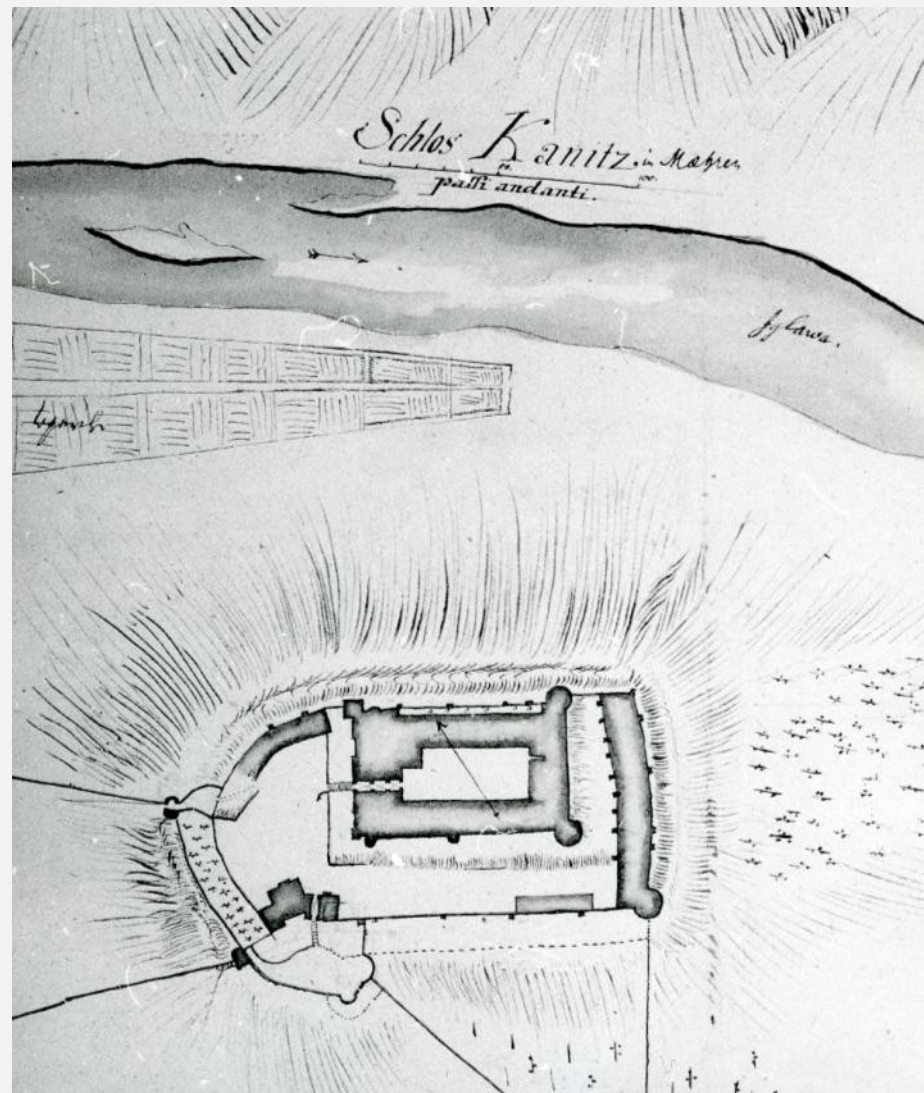 Schlos Kanitz in Mæhren
50. 100.
passi andanti.
Jglawa.